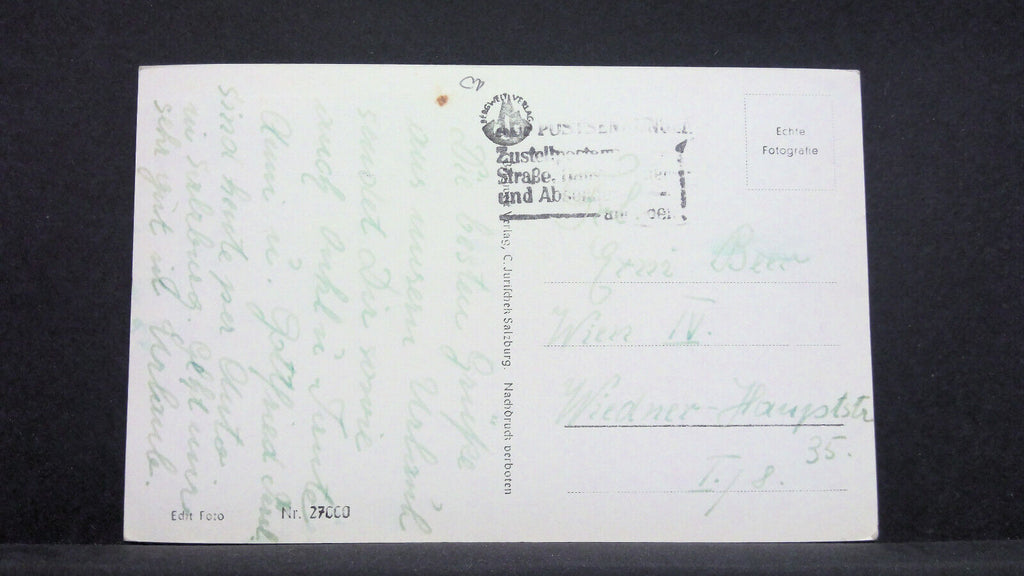 Die besten Grüße
aus unserm Urlaub
sendet Dir sowie
auch Onkel u. Tante
Anni u. Gottfried
sind heute per Auto
in Salzburg. Geht uns
sehr gut im Urlaub.
BERGWELT VERLAG
POSTSENDUNGEN
Zustellpostamt
Straße,
und
Verlag, C. Jurischek Salzburg. Nachdruck verboten
Echte
Fotografie
Wien IV.
Wiedner-Hauptstr
35.
I./8.
Edit Foto Nr. 27000